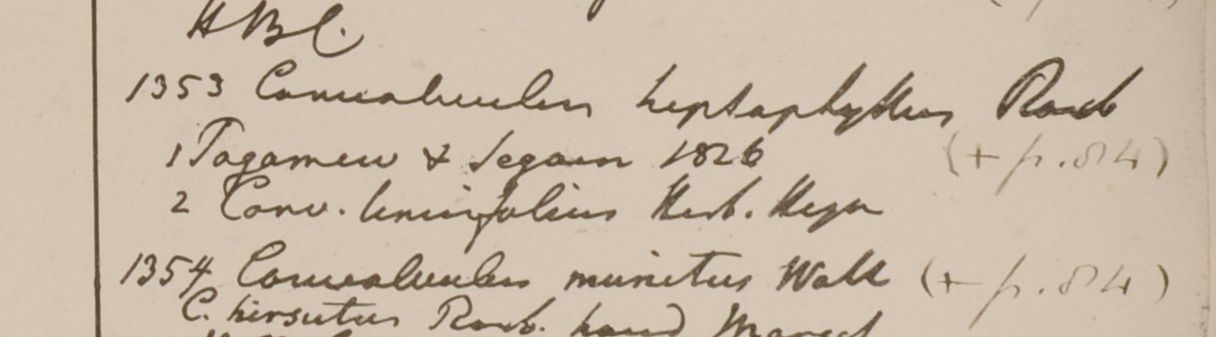 HBC.
1353 Convolvulus heptaphyllus Roxb
1 Pagamew & Segaen 1826 (+ p. 84)
2 Conv. linifolius Herb. Heyn
1354 Convolvulus munitus Wall (+ p. 84)
C. hirsutus Roxb. haud March